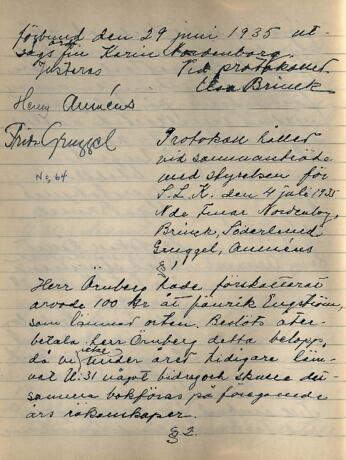 förbund den 29 juni 1935 ut-
sågs fru Karin Nordenborg.
Justeras Vid protokollet
Elsa Brinck
Henry Annéus
Fritz Gruggel
No 64
Protokoll hållet
vid sammanträde
med styrelsen för
S.L.K. den 4 juli 1935
N.de Fruar Nordenborg,
Brinck, Söderlund
Gruggel, Annéus
§ 1.
Herr Örnberg hade förskotterat
arvode 100 Kr åt fänrik Engström,
som lämnat orten. Beslöts åter-
betala herr Örnberg detta belopp,
då vi icke under året tidigare läm-
nat U:31 något bidrag och skulle den-
samma bokföras på föregående
års räkenskaper.
§ 2.